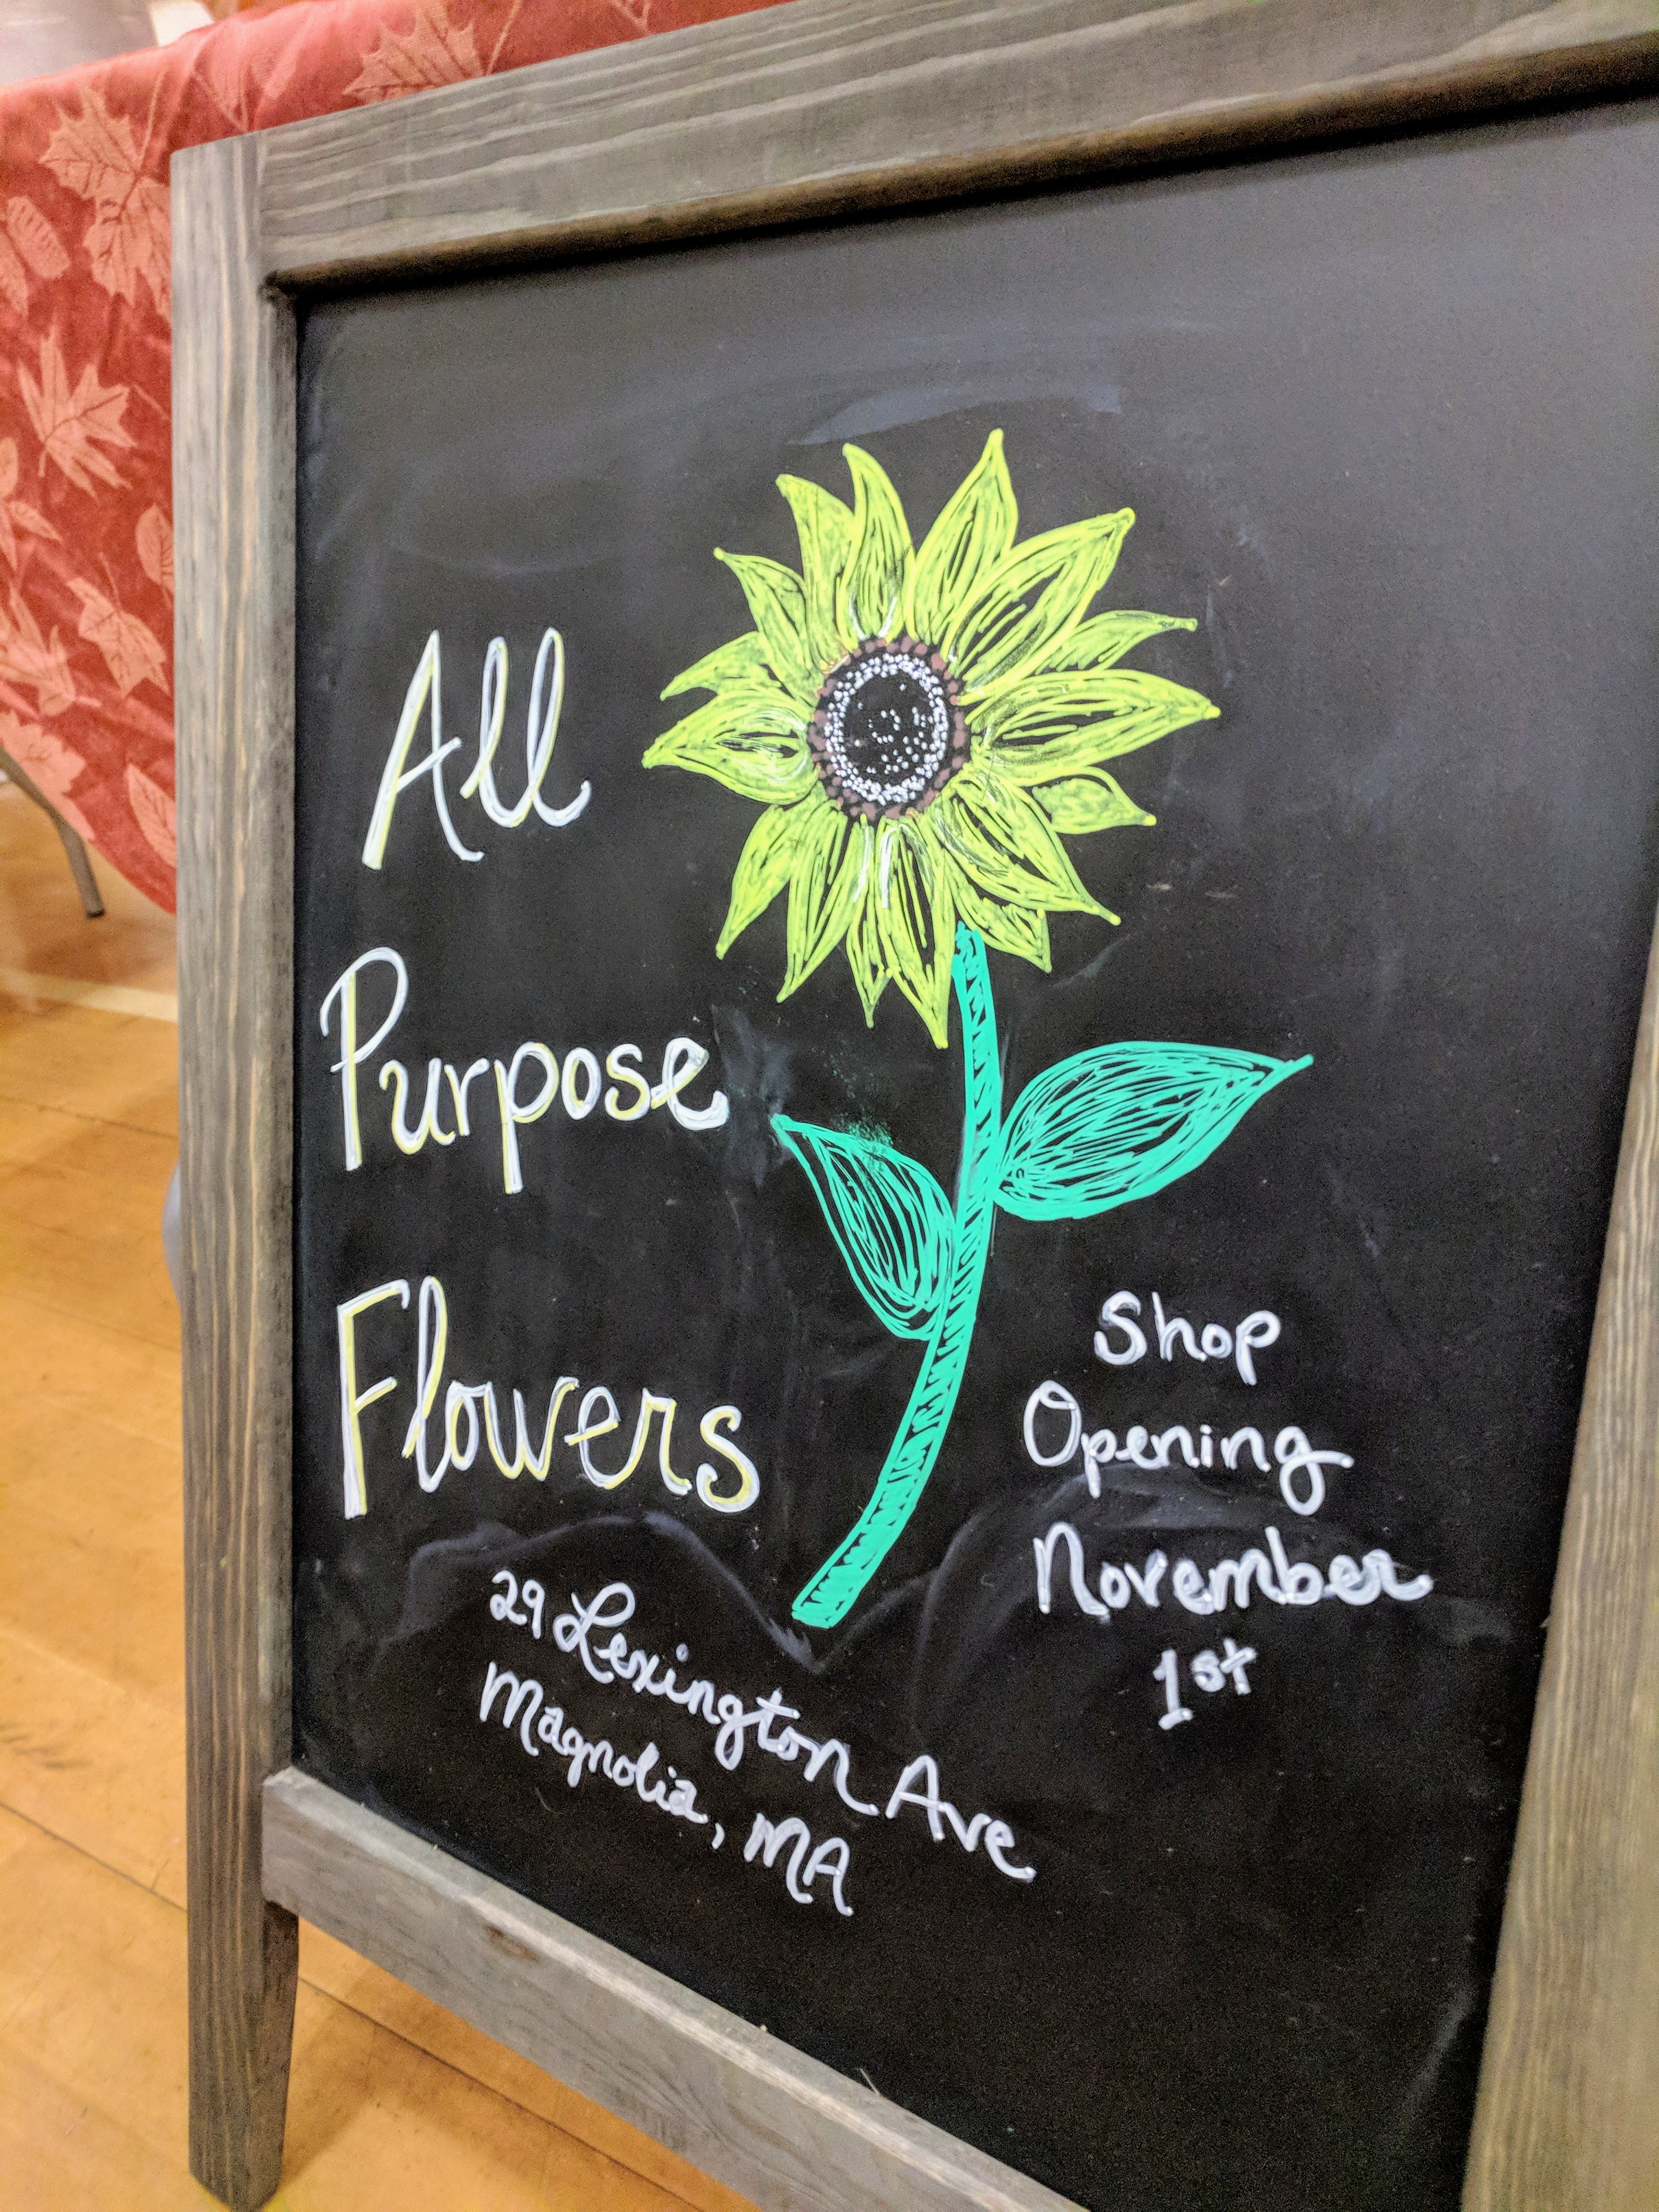 All
Purpose
Flowers
29 Lexington Ave
Magnolia, MA
Shop
Opening
November
1st